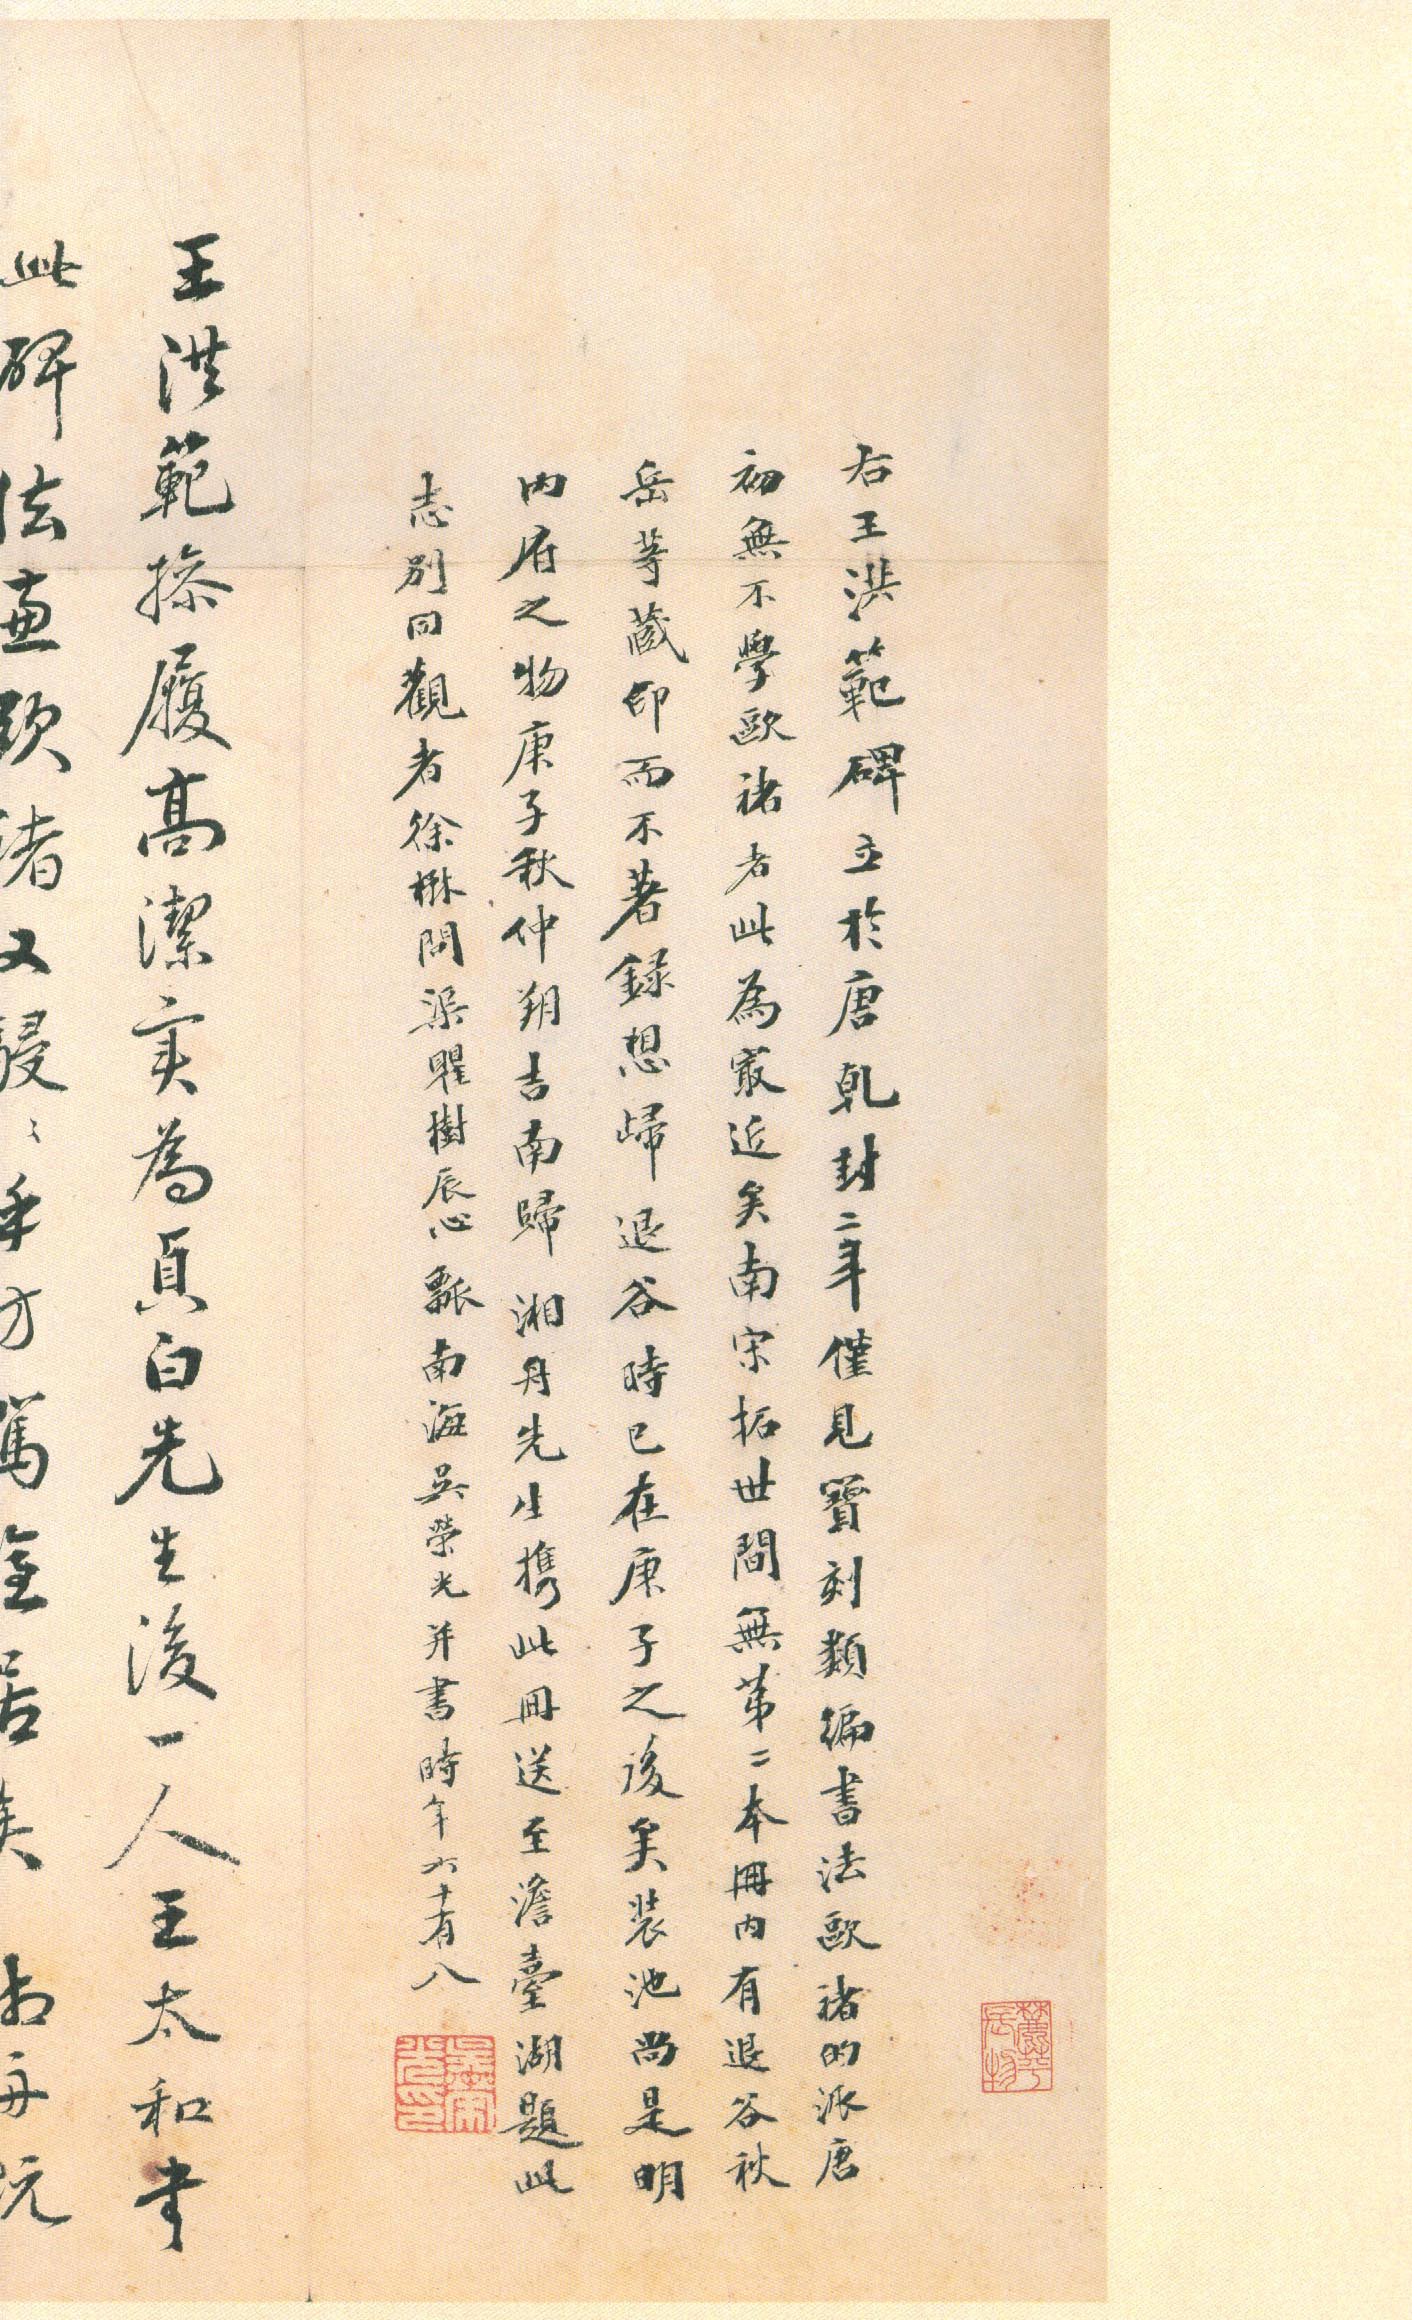 右王洪範碑立於唐乹封二年僅見寶刻類編書法歐褚的派唐
初無不學歐褚者此為最近矣南宋拓世間無第二本冊内有退谷秋
岳等藏印而不著錄想歸退谷時已在庚子之後矣裝池尚是明
内府之物庚子秋仲朔吉南歸湘舟先生携此冊送至澹臺湖題此
志別同觀者徐楙問渠瞿樹辰心瓢南海吳榮光并書時年六十有八
吳榮光印
王洪範操履高潔實為貞白先生後一人王太和書
此碑法兼歐褚又駸〻乎方駕